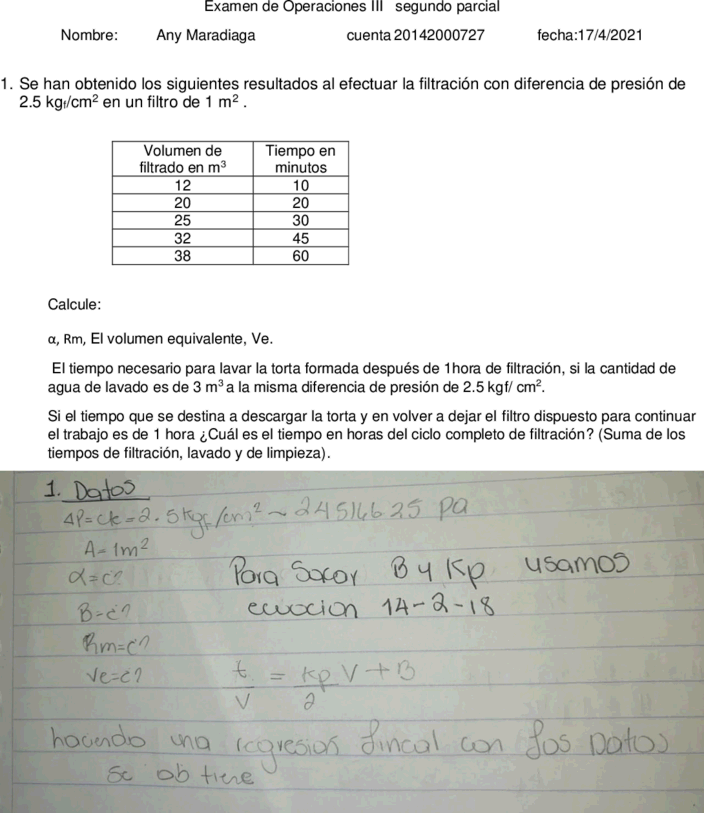 Examen de Operaciones III segundo parcial
Nombre: Any Maradiaga cuenta 20142000727 fecha:17/4/2021
1. Se han obtenido los siguientes resultados al efectuar la filtración con diferencia de presión de
2.5 kgf/cm² en un filtro de 1 m² .
Volumen de filtrado en m³ Tiempo en minutos
12 10
20 20
25 30
32 45
38 60
Calcule:
α, Rm, El volumen equivalente, Ve.
El tiempo necesario para lavar la torta formada después de 1hora de filtración, si la cantidad de
agua de lavado es de 3 m³ a la misma diferencia de presión de 2.5 kgf/ cm².
Si el tiempo que se destina a descargar la torta y en volver a dejar el filtro dispuesto para continuar
el trabajo es de 1 hora ¿Cuál es el tiempo en horas del ciclo completo de filtración? (Suma de los
tiempos de filtración, lavado y de limpieza).
1. Datos
ΔP=ck=2.5kgf/cm² ~ 24516625 pa
A=1m²
α=¿? Para Sacar B y Kp usamos
B=¿? ecuacion 14-2-18
Rm=¿?
Ve=¿? t/V = kp/2 V + B
haciendo una regresion lineal con los Datos
se obtiene